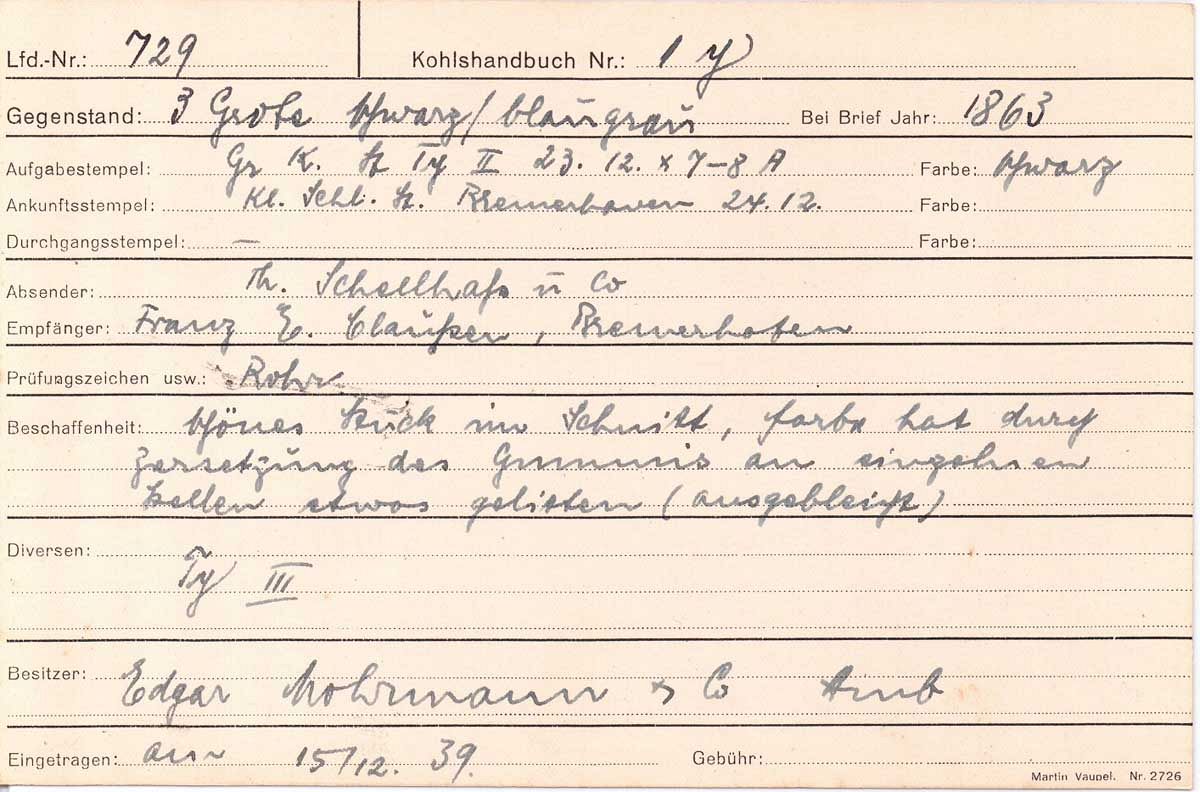 Lfd.-Nr.: 729 Kohlshandbuch Nr.: 1 y
Gegenstand: 3 Grote schwarz/blaugrau Bei Brief Jahr: 1863
Aufgabestempel: Gr K. St Ty II 23. 12. x 7-8 A Farbe: schwarz
Ankunftsstempel: Kl. Schl. St. Bremerhaven 24.12. Farbe:
Durchgangsstempel: — Farbe:
Absender: Th. Schellhaß u Co
Empfänger: Franz E. Claußen, Bremerhafen
Prüfungszeichen usw.: Rohr
Beschaffenheit: schönes Stück im Schnitt, farbe hat durch
Zersetzung des Gummis an
stellen etwas gelitten (ausgebleicht)
Diversen: Ty III
Besitzer: Edgar Mohrmann & Co
Eingetragen: am 15/12. 39. Gebühr:
Martin Vaupel. Nr. 2726